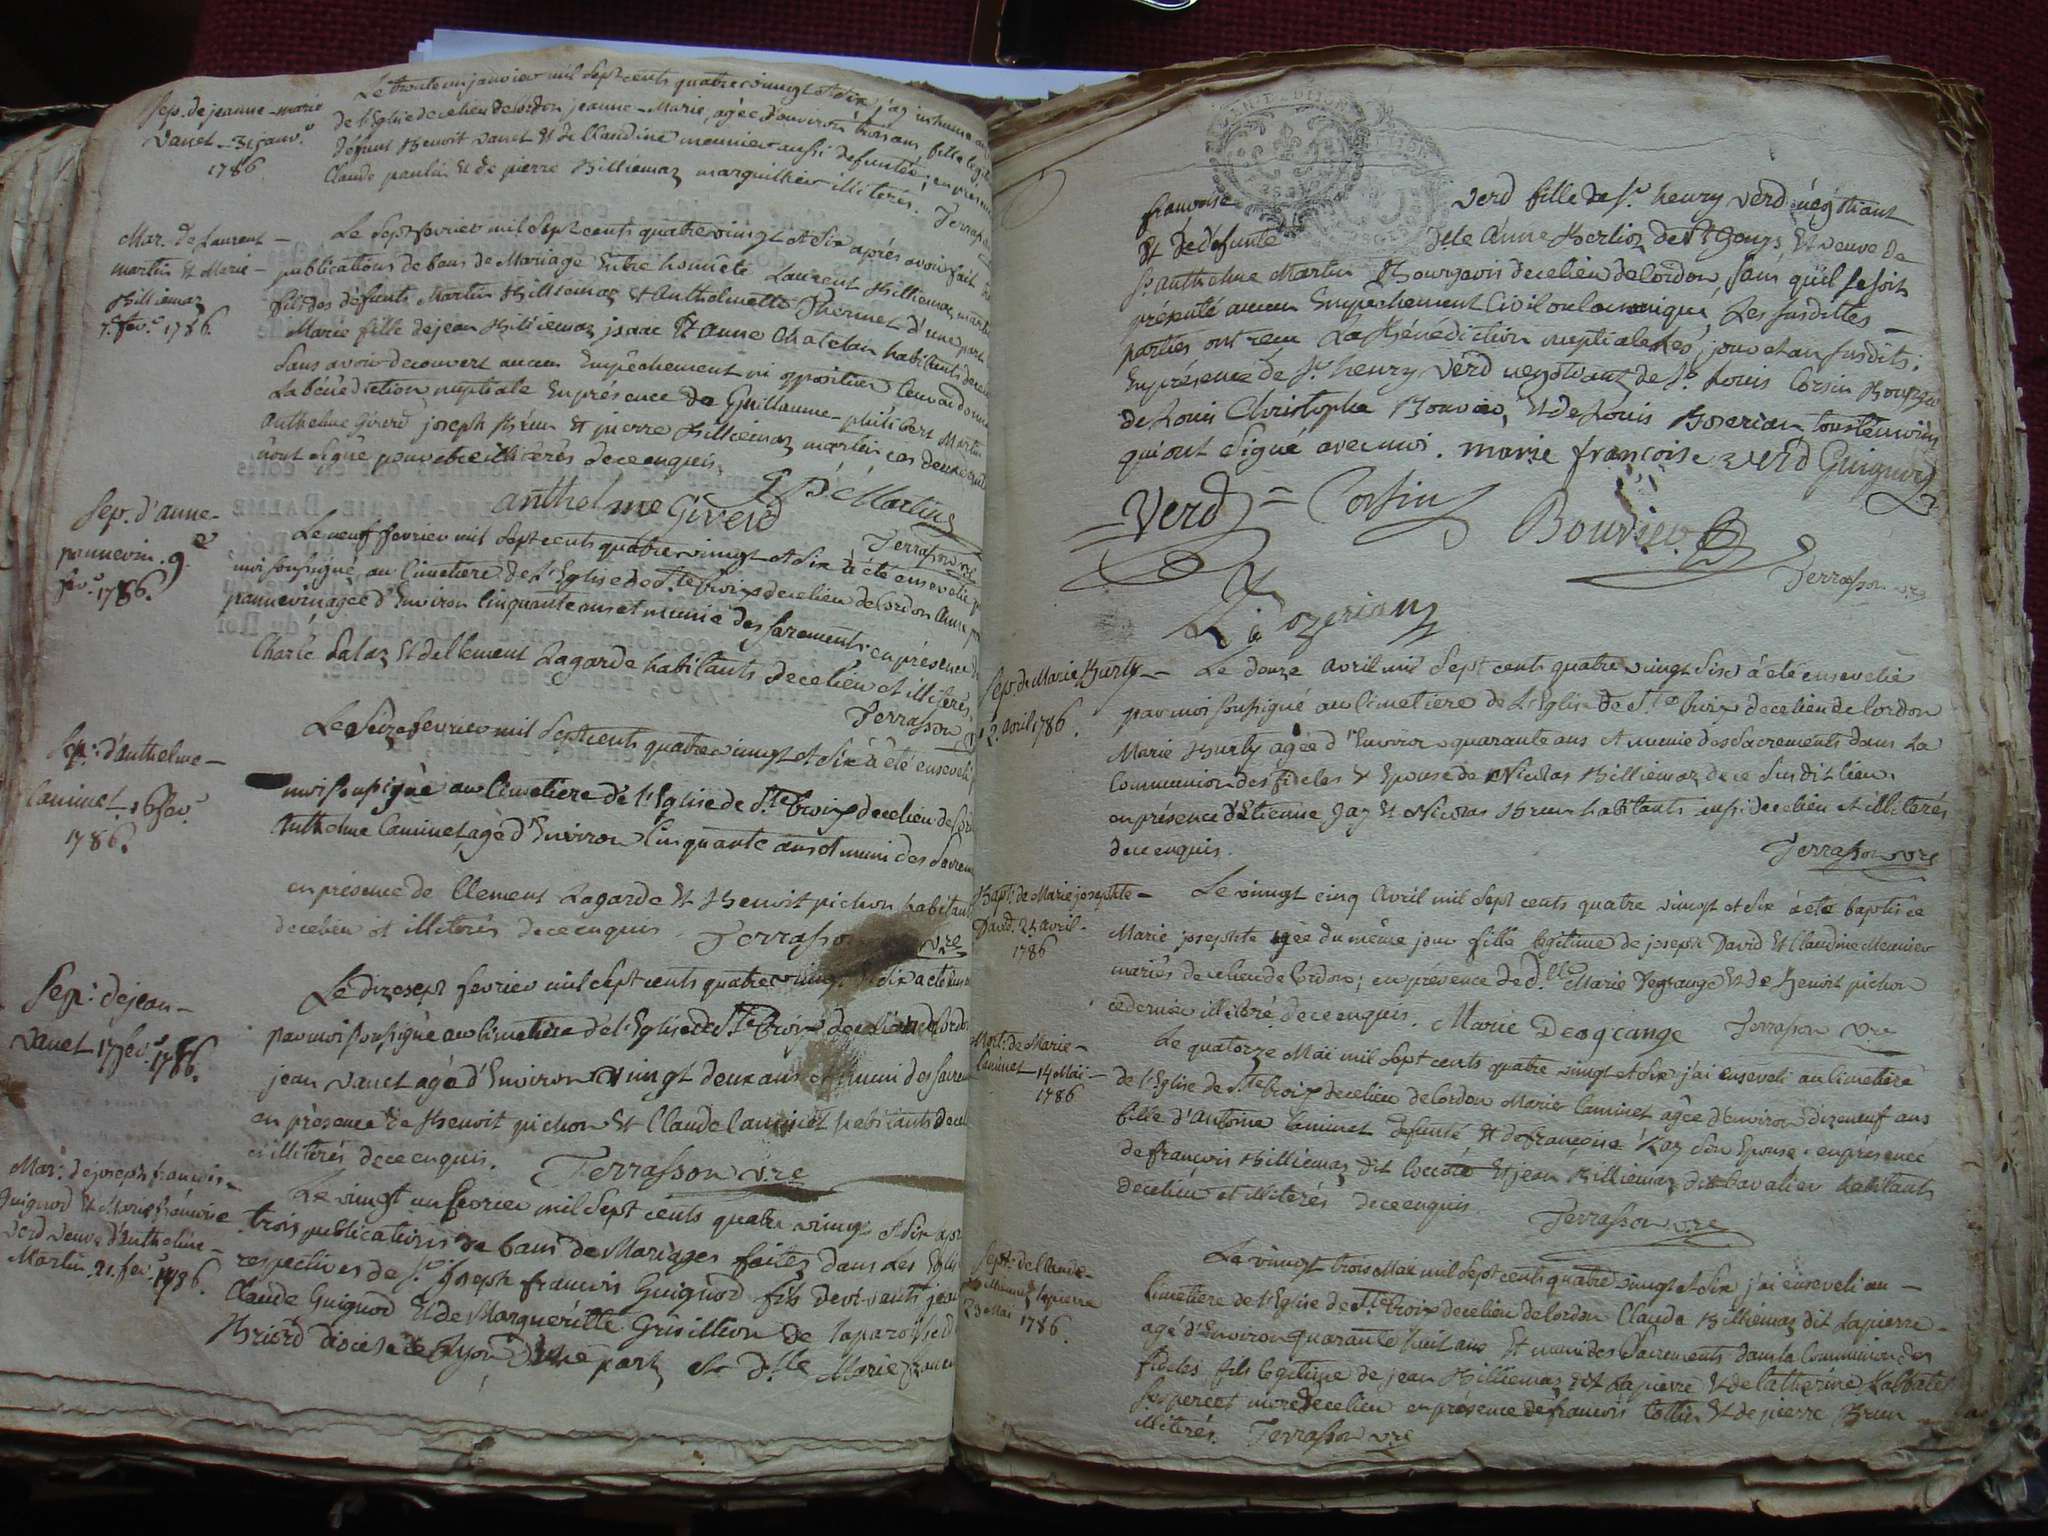 Sep. de jeanne-marie
Vanet - 31 janv.r
1786.
Le trente un janvier mil sept cents quatre vingt et six j'ay inhumé au
de l'Eglise de ce lieu de Cordon jeanne-Marie, agée d'environ trois ans fille legit
défunt Benoit Vanet et de Claudine meunier aussi defuntée; en présen
Claude paulin et de pierre Billiemaz marguillier illiterés. Terrasson
Mar. de Laurent -
martin et Marie -
Billiemaz
7. fev.r 1786.
Le Sept fevrier mil Sept cents quatre vingt et Six après avoir fait
publications de bans de Mariage Entre honnête Laurent Billiemaz martin
fils des défunts Martin Billiemaz et Anthelmette d'une part
Marie fille de jean Billiemaz isaac et Anne Chatelain habitants de ce
Sans avoir decouvert aucun Empêchement ni opposition leur ai donné
La bénédiction nuptiale En présence de Guillaume-philibert Martin
Anthelme Giverd joseph Brun et pierre Billiemaz martin ces deux
n'ont signé pour etre illiterés de ce enquis.
anthelme Giverd G P Martin
Terrasson v.re
Sep. d'anne -
pannevin. 9.e
fev.r 1786.
Le neuf fevrier mil Sept cents quatre vingt et Six à été ensevelie p
moi Soussigné au Cimetiere de l'Eglise de S.te Croix de ce lieu de Cordon Anne
pannevin agée d'Environ Cinquante ans et munie des Sacrements. en présence d
Charle Salaz et de Clement Lagarde habitants de ce lieu et illiterés.
Terrasson
Sep.: d'anthelme -
Caninet. 16 fev.r
1786.
Le Seize fevrier mil Sept cents quatre vingt et Six à été enseveli
moi Soussigné au Cimetiere de l'Eglise de S.te Croix de ce lieu de Cor
Anthelme Caninet agé d'Environ Cinquante ans et muni des Sacrem
en présence de Clement Lagarde et Benoit pichon habitant
de ce lieu et illiterés de ce enquis. Terrasson v.re
Sep.: de jean -
Vanet 17 fev.r 1786.
Le dix sept fevrier mil Sept cents quatre vingt et Six a eté
par moi Soussigné au Cimetiere de l'Eglise de S.te Croix de ce lieu de Cordon
jean Vanet agé d'Environ vingt deux ans et muni des Sacrem
en présence de Benoit pichon et Claude Caninet habitants de ce
et illiterés de ce enquis. Terrasson v.re
Mar.: de joseph françois -
Guignod et Marie françoise
verd veuve d'anthelme -
Martin. 21. fev.r 1786.
Le vingt un fevrier mil Sept cents quatre vingt et Six apr
trois publications de bans de Mariages faites dans les Eglis
respectives de S.r joseph françois Guignod fils de vivants
Claude Guignod et de Marguerite Grisillion de la paroisse d
Briord diocese de Lyon d'une part et d.lle Marie
françoise verd fille de S.r henry verd négotiant
et de défunte d.lle Anne Berlioz de et veuve de
S.r anthelme Martin Bourgeois de ce lieu de Cordon, Sans qu'il se soit
présenté aucun Empechement Civil ou canonique, Les Susdittes -
parties ont reçu La Bénédiction nuptiale les jour et an susdits.
En présence de S.r henry verd negotiant de S.r Louis Corsin Bourgeo
de Louis Christophe Bouvier, et de Louis Bozerian tous temoins
qui ont signé avec moi. marie françoise verd Guignod
Verd Corsin Bouvier
Terrasson v.re
L. Bozerian
Sep. de Marie Burty -
12. avril 1786.
Le douze avril mil Sept cents quatre vingt Six à été ensevelie
par moi Soussigné au Cimetiere de l'Eglise de S.te Croix de ce lieu de Cordon
Marie Burty agée d'Environ quarante ans et munie des Sacrements dans la
Communion des fideles et Epouse de Nicolas Billiemaz de ce Susdit lieu.
en présence d'Etienne Jay et Nicolas Brun habitants aussi de ce lieu et illiterés
de ce enquis. Terrasson v.re
Bapt. de Marie josephte -
David. 25 avril -
1786
Le vingt cinq Avril mil Sept cents quatre vingt et Six à eté baptisée
Marie josephte née du même jour fille legitime de joseph David et Claudine Meunier
mariés de ce lieu de Cordon; en présence de d.lle Marie Degrange et de Benoit pichon
ce dernier illitéré de ce enquis. Marie Desgrange Terrasson v.re
Mort: de Marie -
Caninet 14 Mai -
1786
Le quatorze Mai mil Sept cents quatre vingt et Six j'ai enseveli au Cimetiere
de l'Eglise de S.te Croix de ce lieu de Cordon Marie Caninet agée d'environ dix neuf ans
fille d'Antoine Caninet defunté et de françoise Son Epouse. en présence
de françois Billiemaz dit Coccote et jean Billiemaz dit Cavalier habitants
de ce lieu et illiterés de ce enquis. Terrasson v.re
Sept: de Claude -
Billiemaz lapierre
23 Mai 1786.
Le vingt trois Mai mil Sept cents quatre vingt et Six j'ai enseveli au -
Cimetiere de l'Eglise de S.te Croix de ce lieu de Cordon Claude Billiemaz dit Lapierre -
agé d'Environ quarante huit ans et muni des Sacrements dans la Communion des
fideles, fils legitime de jean Billiemaz dit Lapierre et de Catherine
Ses pere et mere de ce lieu en présence de françois Collin et de pierre Brun
illiterés. Terrasson v.re